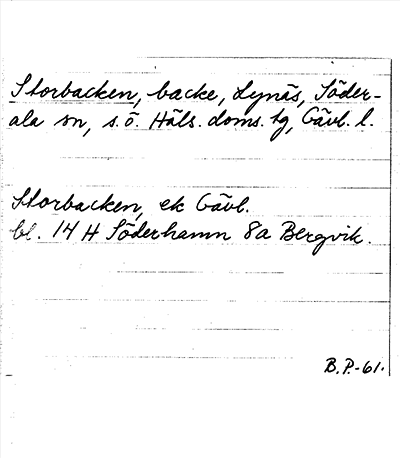 Storbacken, backe, Lynäs, Söder-
ala sn, s.ö. Häls. doms. tg, Gävl. l.
Storbacken, ek Gävl.
bl. 14 H Söderhamn 8a Bergvik.
B.P.-61.